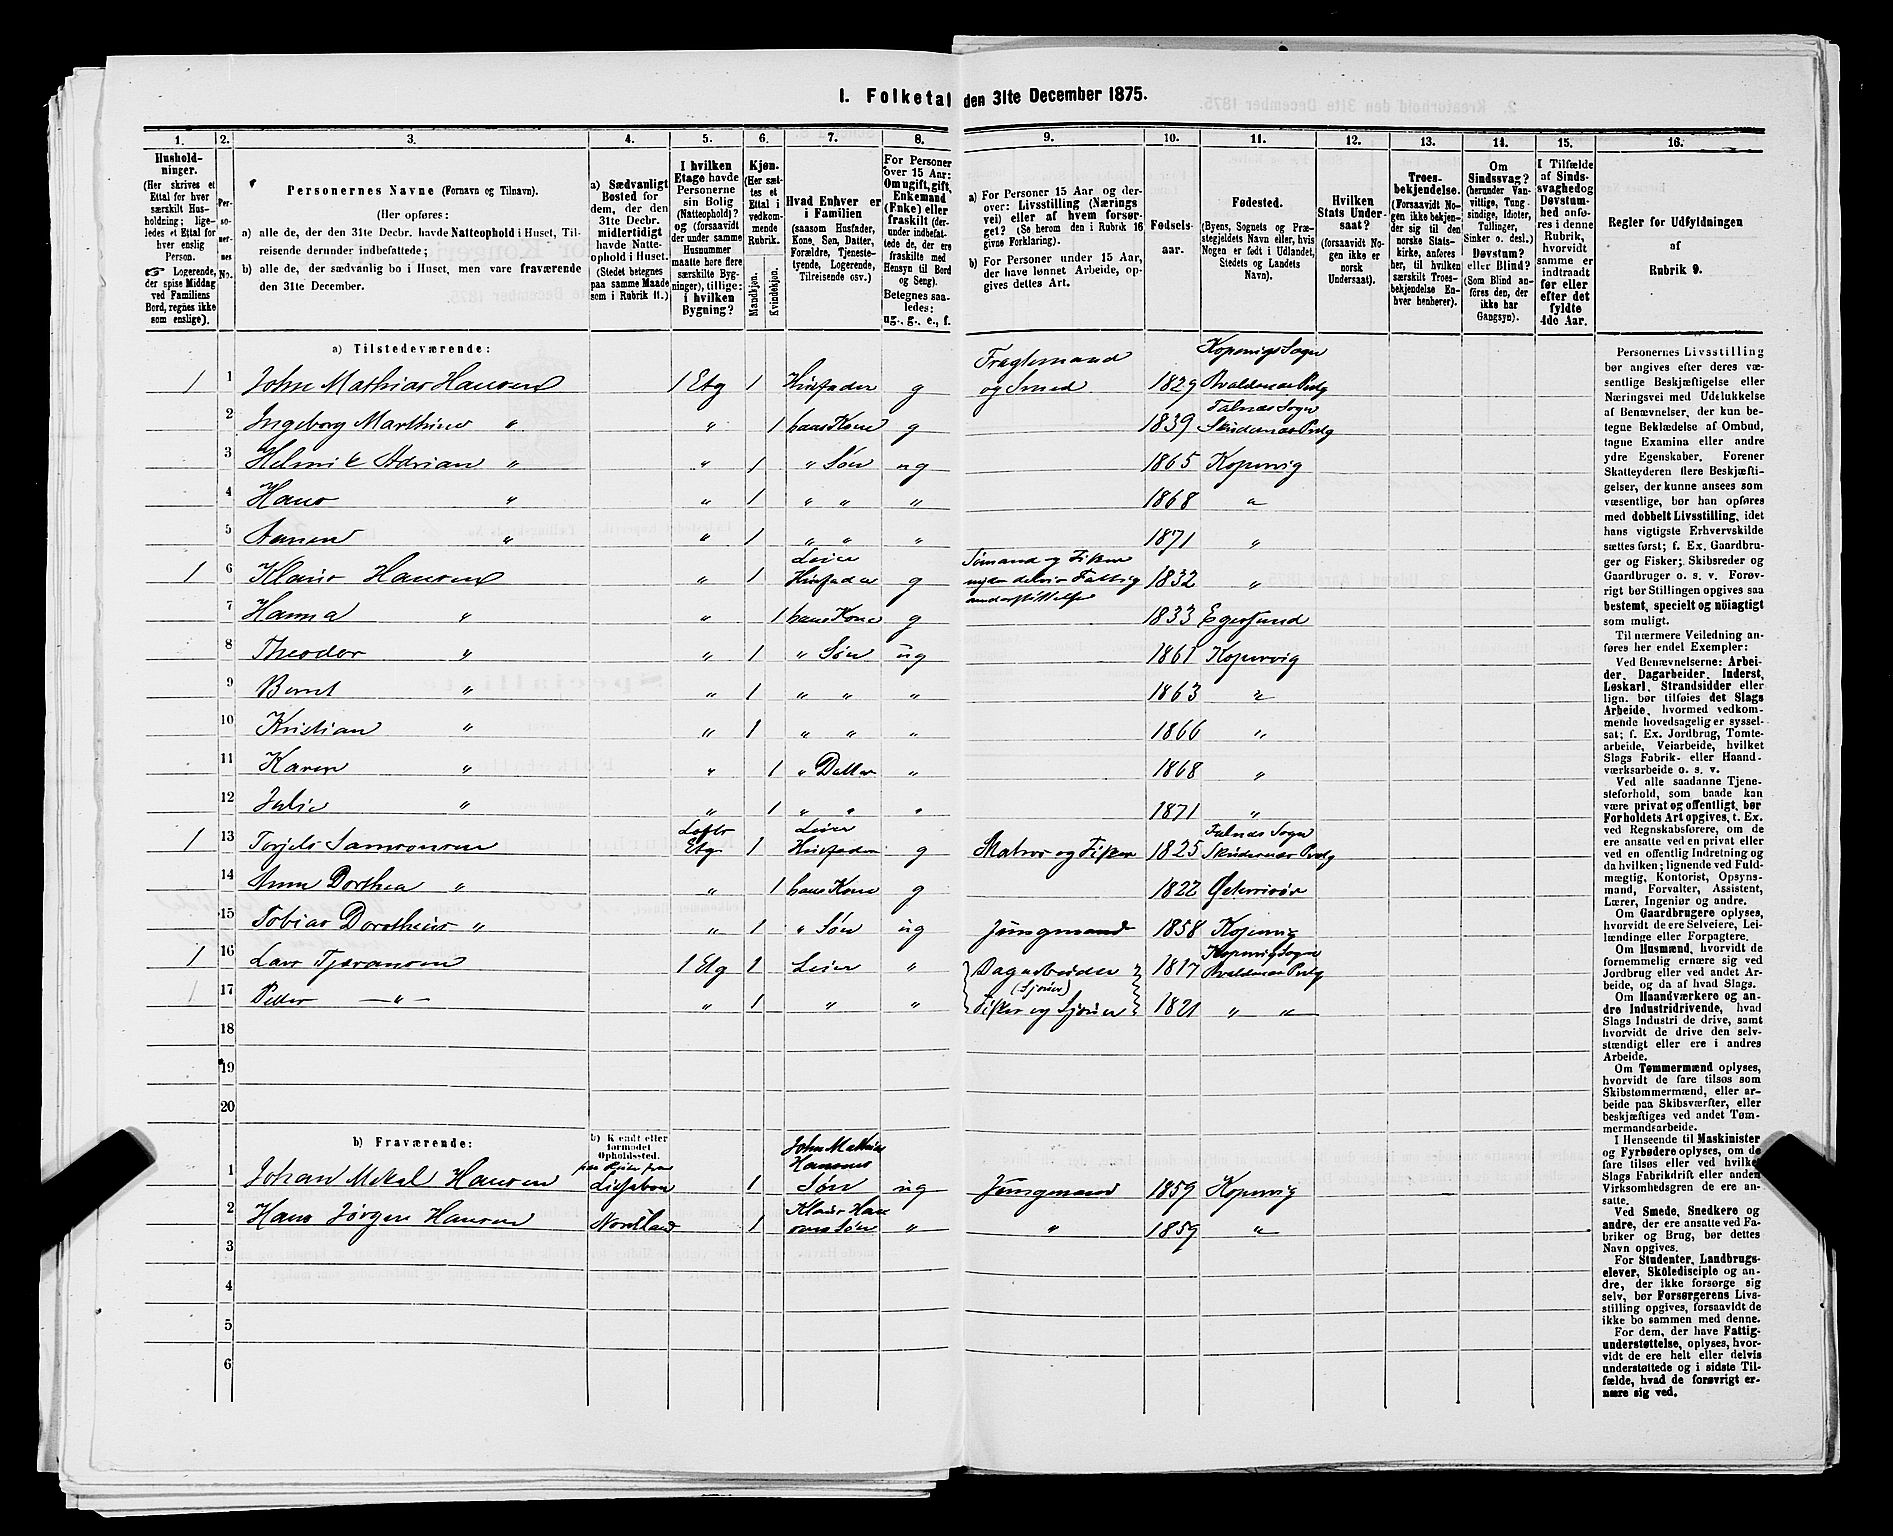 I. Folketal den 31te December 1875.
1. 2. 3. 4. 5. 6. 7. 8. 9. 10. 11. 12. 13. 14. 15. 16.
Hushold-
ninger.
(Her skrives et
Ettal for hver
særskilt Hus-
holdning; lige-
ledes et Ettal for
hver enslig
Person.
☞ Logerende,
der spise Middag
ved Familiens
Bord, regnes ikke
som enslige).
Per-
so-
ner-
nes
No.
Personernes Navne (Fornavn og Tilnavn).
(Her opføres:
a) alle de, der den 31te Decbr. havde Natteophold i Huset, Til-
reisende derunder indbefattede;
b) alle de, der sædvanlig bo i Huset, men vare fraværende
den 31te December.
a) Sædvanligt
Bosted for
dem, der den
31te Decbr.
midlertidigt
havde Natte-
ophold i Huset.
(Stedet betegnes
paa samme Maade
som i Rubrik 11.)
I hvilken
Etage havde
Personerne
sin Bolig
(Natteophold)?
og (forsaavidt
der under samme
Husnummer
maatte høre flere
særskilte Byg-
ninger), tillige:
i hvilken
Bygning?
Kjøn.
(Her sæt-
tes et
Ettal i
vedkom-
mende
Rubrik.
Mandkjøn.
Kvindekjøn.
Hvad Enhver er
i Familien
(saasom Husfader,
Kone, Søn, Datter,
Forældre, Tjeneste-
tyende, Logerende,
Tilreisende osv.)
For Personer
over 15 Aar:
Om ugift, gift,
Enkemand
(Enke) eller
fraskilt (der-
under indbefat-
tede de, der ere
fraskilte med
Hensyn til Bord
og Seng).
Betegnes saa-
ledes:
ug., g., e., f.
a) For Personer 15 Aar og der-
over: Livsstilling (Nærings
vei) eller af hvem forsør-
get? (Se herom den i Rubrik 16
givne Forklaring).
b) For Personer under 15 Aar,
der have lønnet Arbeide, op-
gives dettes Art.
Fødsels-
aar.
Fødested.
(Byens, Sognets og Præ-
stegjeldets Navn eller, hvis
Nogen er født i Udlandet,
Stedets og Landets
Navn).
Hvilken
Stats Under-
saat?
(forsaavidt No-
gen ikke er
norsk
Undersaat).
Troes-
bekjendelse.
(Forsaavidt No-
gen ikke bekjen-
der sig til den
norske Stats-
kirke, anføres
her, til hvilken
særskilt Troes-
bekjendelse En-
hver henhører).
Om
Sindssvag?
(herunder Van-
vittige, Tung-
sindige, Idioter,
Tullinger,
Sinker o. desl.)
Døvstum?
eller Blind?
(Som Blind an-
føres den, der
ikke har
Gangsyn).
I Tilfælde
af Sinds-
svaghed og
Døvstum-
hed anfø-
res i denne
Rubrik,
hvorvidt
samme er
indtraadt
før eller
efter det
fyldte
4de Aar.
Regler for Udfyldningen
af
Rubrik 9.
a) Tilstedeværende:
1 1 John Mathias Hansen 1 Etg 1 Husfader g Fragtemand og Smed 1829 Kopervigs Sogn Avaldsnæs Prstg
2 Ingeborg Marthine " " 1 hans Kone g 1839 Falnæs Sogn Skudesnæs Prstg
3 Helmik Adrian " " 1 " Søn ug 1865 Kopervig
4 Hans " " 1 " " " 1868 "
5 Aanen " " 1 " " " 1871 "
1 6 Klaus Hansen " 1 Leier Husfader g Sømand og Fisker nyder delvis Fattig understøttelse 1832 "
7 Hanna " " 1 hans Kone g 1833 Egersund
8 Theodor " " 1 " Søn ug 1861 Kopervig
9 Bernt " " 1 " " " 1863 "
10 Kristian " " 1 " " " 1866 "
11 Karen " " 1 " Datter " 1868 "
12 Julie " " 1 " " " 1871 "
1 13 Torjels Samsonsen Lofts Etg 1 Leier Husfader g Matros og Fisker 1825 Falnæs Sogn Skudesnæs Prstg
14 Anna Dorthea " " 1 hans Kone g 1822 Østerrisør
15 Tobias Dorotheus " " 1 " Søn ug Jungmand 1858 Kopervig
1 16 Lars Tjeransen 1 Etg 1 Leier " Dagarbeider (Sjøuer) 1817 Kopervigs Sogn Avaldsnæs Prstg
1 17 Peder — " — " 1 " " Fisker og Sjøuer 1821 " "
18
19
20
b) Fraværende:
b) Kendt eller
formodet
Opholdssted.
1 Johan Mikal Hansen paa Reise fra Lissabon 1 John Mathias Hansens Søn ug Jungmand 1859 Kopervig
2 Hans Jørgen Hansen Nordland 1 Klaus Hansens Søn " " 1859 "
3
4
5
6
Personernes Livsstilling
bør angives efter deres væ-
sentlige Beskjæftigelse eller
Næringsvei med Udelukkelse
af Benævnelser, der kun be-
tegne Beklædelse af Ombud,
tagne Examina eller andre
ydre Egenskaber. Forener
Skatteyderen flere Beskjæfti-
gelser, der kunne ansees som
væsentlige, bør han opføres
med dobbelt Livsstilling, idet
hans vigtigste Erhvervskilde
sættes først; f. Ex. Gaardbru-
ger og Fisker; Skibsreder og
Gaardbruger o. s. v. Forøv-
rigt bør Stillingen opgives saa
bestemt, specielt og nöiagtigt
som muligt.
Til nærmere Veiledning an-
føres her endel Exempler:
Ved Benævnelserne: Arbei-
der, Dagarbeider, Inderst,
Løskarl, Strandsidder eller
lign. bør tilføies det Slags
Arbeide, hvormed vedkom-
mende hovedsagelig er syssel-
sat; f. Ex. Jordbrug, Tomte-
arbeide, Veiarbeide, hvilket
Slags Fabrik- eller Haand-
værksarbeide o. s. v.
Ved alle saadanne Tjene-
steforhold, som baade kan
være privat og offentligt, bør
Forholdets Art opgives, t. Ex.
ved Regnskabsførere, om de
ere ansatte ved en privat eller
ved en offentlig Indretning og
da hvilken; lignende ved Fuld-
mægtig, Kontorist, Opsyns-
mand, Forvalter, Assistent,
Lærer, Ingeniør og andre.
Om Gaardbrugere oplyses,
hvorvidt de ere Selveiere, Lei-
lændinge eller Forpagtere.
Om Husmænd, hvorvidt de
fornemmelig ernære sig ved
Jordbrug eller ved andet Ar-
beide, og da af hvad Slags.
Om Haandværkere og an-
dre Industridrivende, hvad
Slags Industri de drive, samt
hvorvidt de drive den selv-
stændigt eller ere i andres
Arbeide.
Om Tømmermænd oplyses,
hvorvidt de fare tilsøs som
Skibstømmermænd, eller ar-
beide paa Skibsværfter, eller
beskjæftiges ved andet Tøm-
mermandsarbeide.
I Henseende til Maskinister
og Fyrbødere oplyses, om de
fare tilsøs eller ved hvilket
Slags Fabrikdrift eller anden
Virksomhedsgren de ere an-
satte.
Ved Smede, Snedkere og
andre, der ere ansatte ved Fa-
briker og Brug, bør dettes
Navn opgives.
For Studenter, Landbrugs-
elever, Skoledisciple og an-
dre, der ikke forsørge sig
selv, bør Forsørgerens Livs-
stilling opgives, forsaavidt de
ikke bo sammen med denne.
For dem, der have Fattig-
understøttelse, oplyses, hvor-
vidt de ere helt eller delvis
understøttede og i sidste Til-
fælde, hvad de forøvrigt er-
nære sig ved.